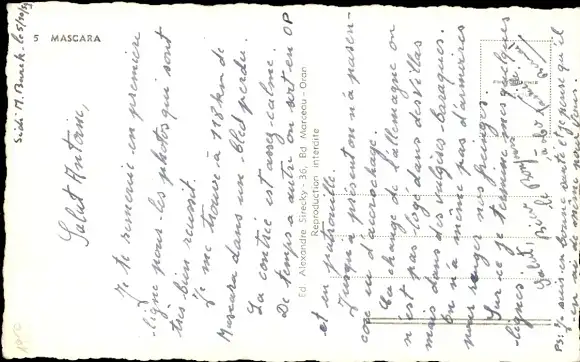 Sidi M. Barek. le 5/10/59
5 MASCARA
Salut Antoine,
Je te remercie en première
ligne pour les photos qui sont
très bien réussit.
Je me trouve à 118 km de
Mascara dans un bled perdu.
La contrée est assez calme.
De temps a autre on sort en OP
et en patrouille.
Jusqu'à présent on n'a pas en-
core eu d'accrochage.
Ca change de l'allemagne on
n'est pas logé dans des villas
mais dans des vulgères baraques.
On n'a même pas d'armoires
pour ranger nos fringues.
Sur ce je termine mes quelques
lignes
Salut, Bien
PS: Je suis en bonne santé et j'espère qu'il
en est de même pour
Ed. Alexandre Sirecky - 36, Bd Marceau - Oran
Reproduction interdite